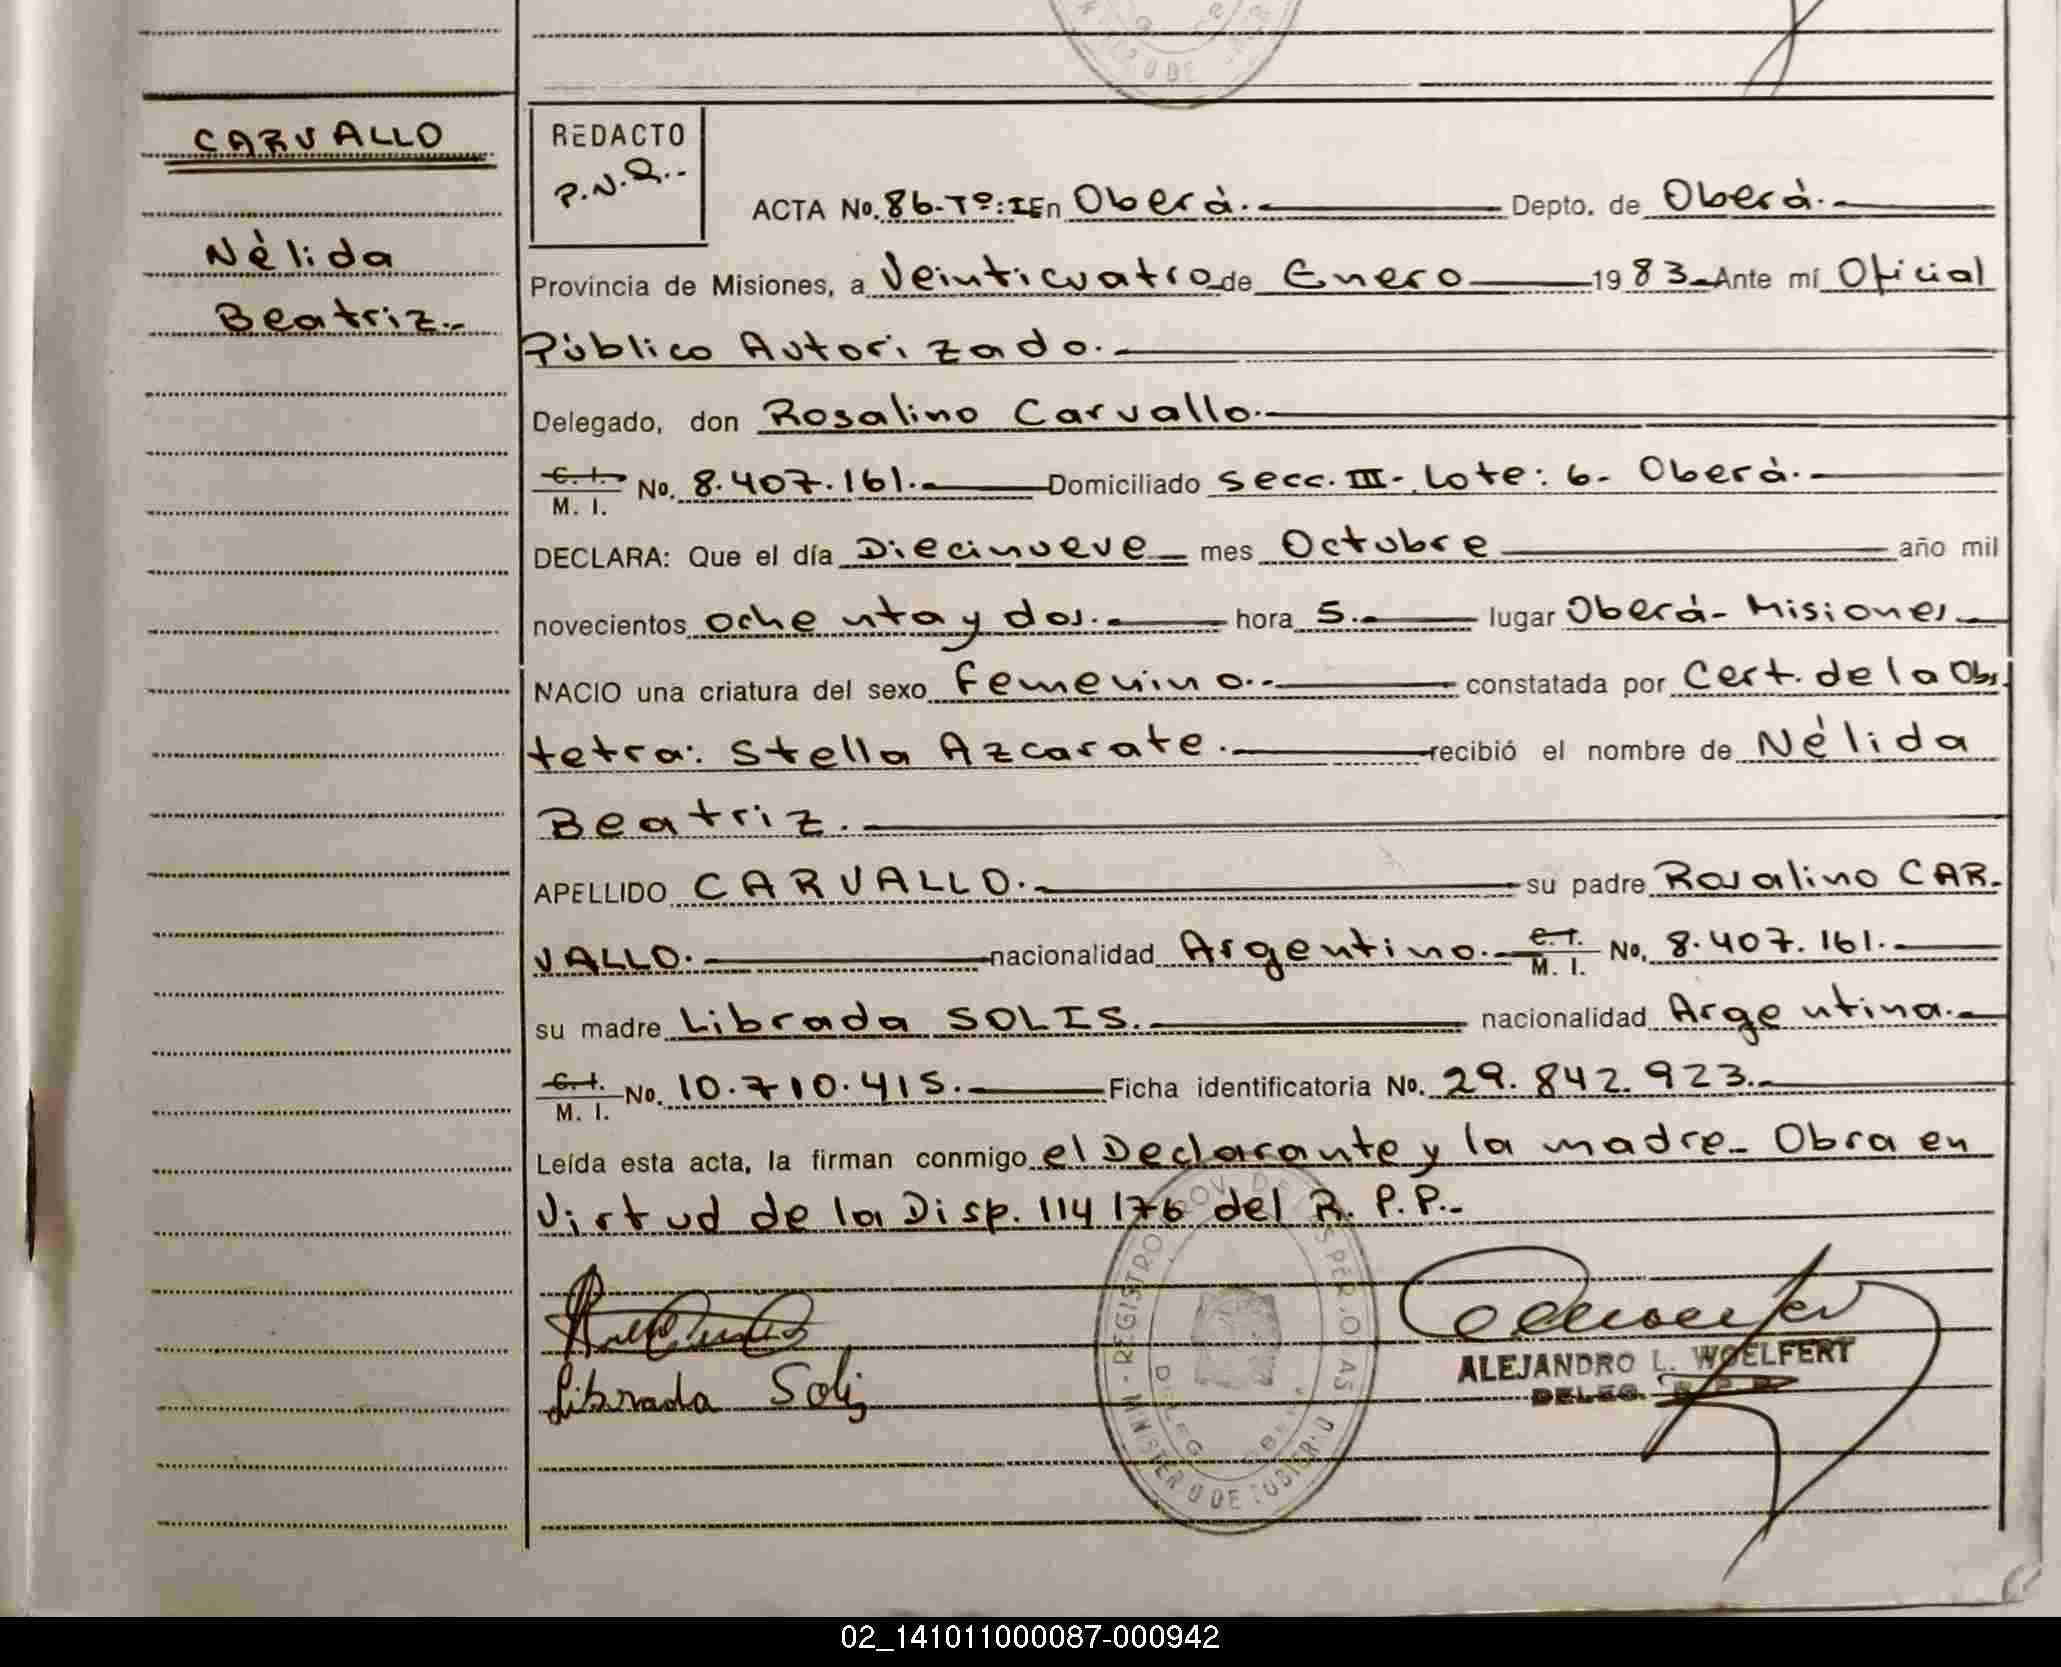 CARVALLO
Nélida
Beatriz.-
REDACTO
P.N.R..
ACTA No. 86-Tº:I En Oberá. Depto. de Oberá.
Provincia de Misiones, a Veinticuatro de Enero 1983 Ante mí Oficial
Público Autorizado.
Delegado, don Rosalino Carvallo.
C. I. No. 8.407.161. Domiciliado Secc. III-, Lote: 6- Oberá.
M. I.
DECLARA: Que el día Diecinueve mes Octubre año mil
novecientos ochenta y dos. hora 5. lugar Oberá- Misiones
NACIO una criatura del sexo femenino.- constatada por Cert. de la Obs
tetra: Stella Azcarate. recibió el nombre de Nélida
Beatriz.
APELLIDO CARVALLO. su padre Rosalino CAR-
VALLO. nacionalidad Argentino. C. I. No. 8.407.161.
M. I.
su madre Librada SOLIS. nacionalidad Argentina.
C. I. No. 10.710.415. Ficha identificatoria No. 29.842.923.
M. I.
Leída esta acta, la firman conmigo el Declarante y la madre- Obra en
Virtud de la Disp. 114176 del R. P. P.-
Librada Solis
ALEJANDRO L. WOELFERT
DELEG.
REGISTRO PROV. DE LAS PERSONAS
MINISTERIO DE GOBIERNO
02_141011000087-000942